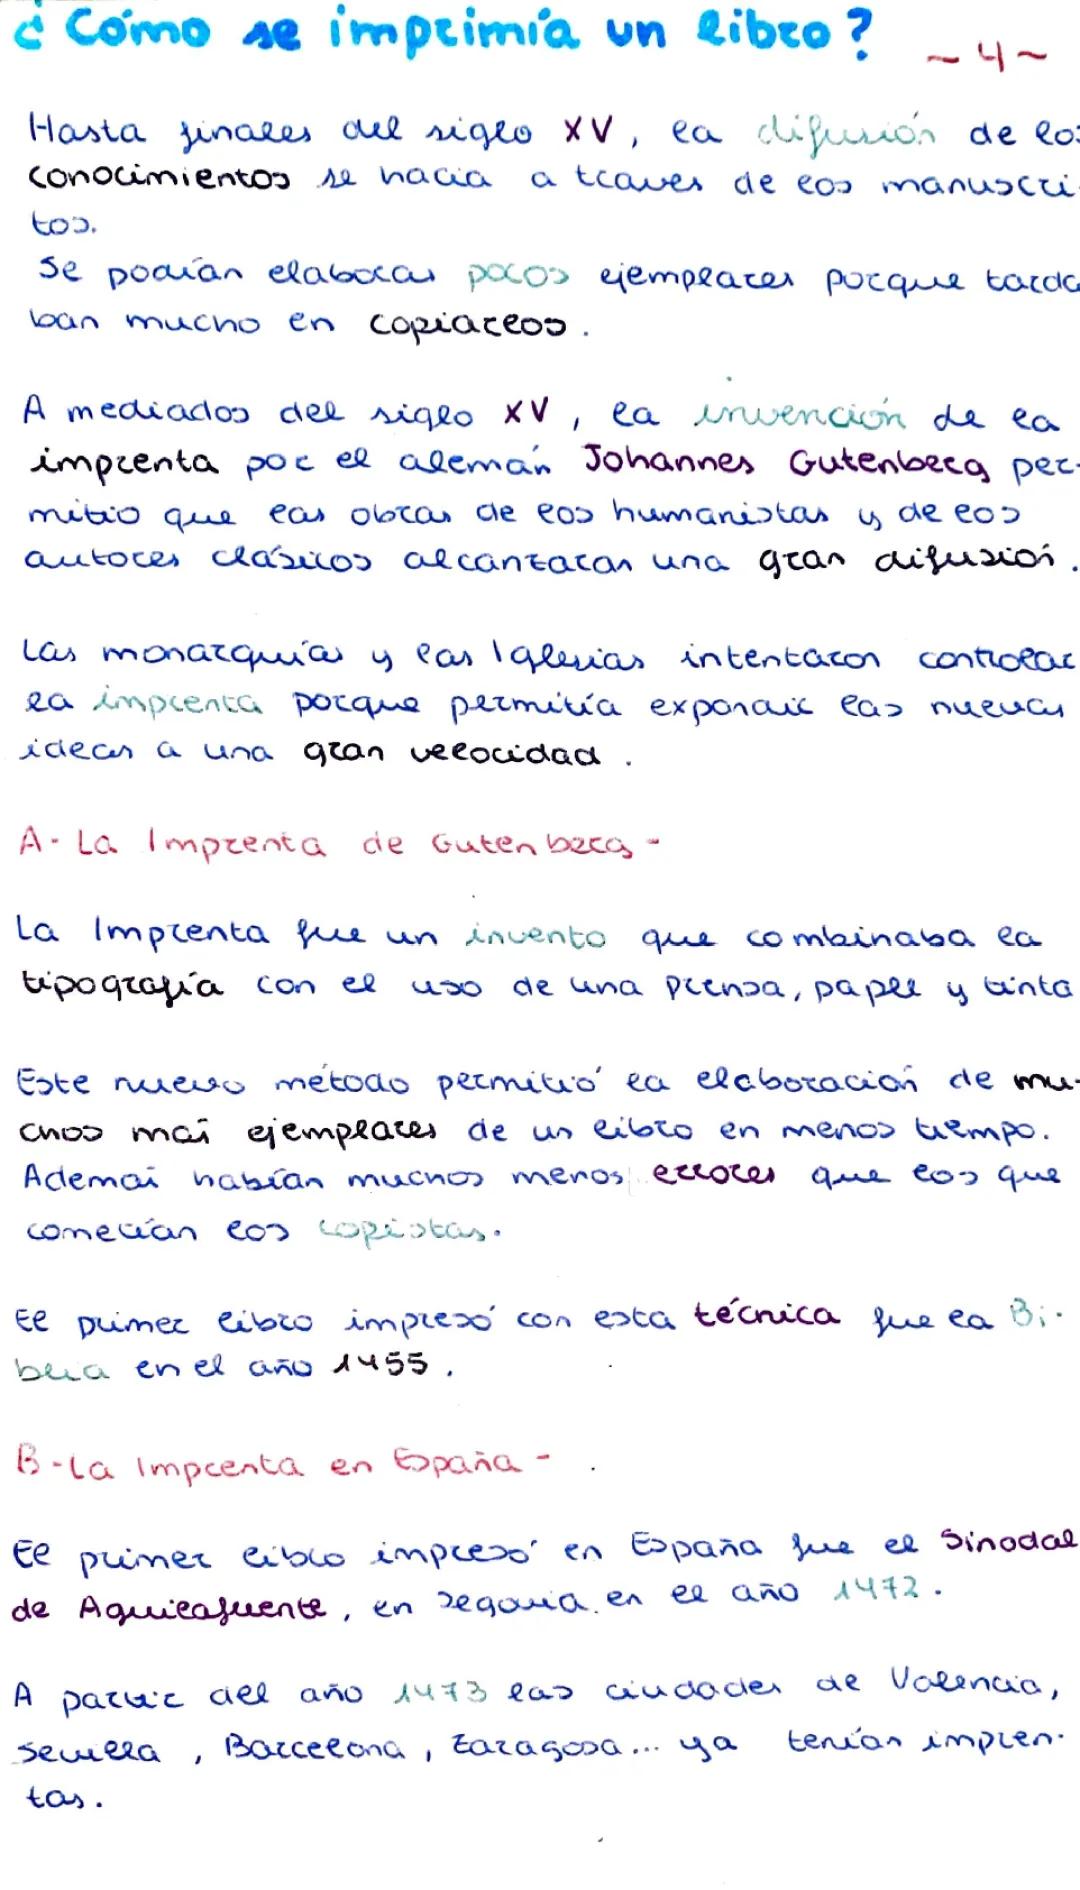 ¿Cómo se imprimía un libro?
~4~
Hasta finales del siglo XV, la difusión de los
conocimientos se hacia a traves de los manuscri-
tos.
Se podían elaborar pocos ejemplares porque tarda
ban mucho en copiarlos.
A mediados del siglo XV, la invención de la
imprenta por el alemán Johannes Gutenberg per-
mitio que las obras de los humanistas y de los
autores clásicos alcanzaran una gran difusión.
Las monarquías y las Iglesias intentaron controlar
la imprenta porque permitía expandir las nuevas
ideas a una gran velocidad.
A- La Imprenta de Gutenberg-
La Imprenta fue un invento que combinaba la
tipografía con el uso de una prensa, papel y tinta
Este nuevo método permitió la elaboración de mu-
chos más ejemplares de un libro en menos tiempo.
Además habían muchos menos errores que los que
cometían los copistas.
El primer libro impresó con esta técnica fue la Bi-
blia en el año 1455.
B-La Imprenta en España-
El primer libro impresó en España fue el Sinodal
de Aguilafuente, en Segovia en el año 1472.
A partir del año 1473 las ciudades de Valencia,
Sevilla, Barcelona, Zaragosa... ya tenían impren-
tas.